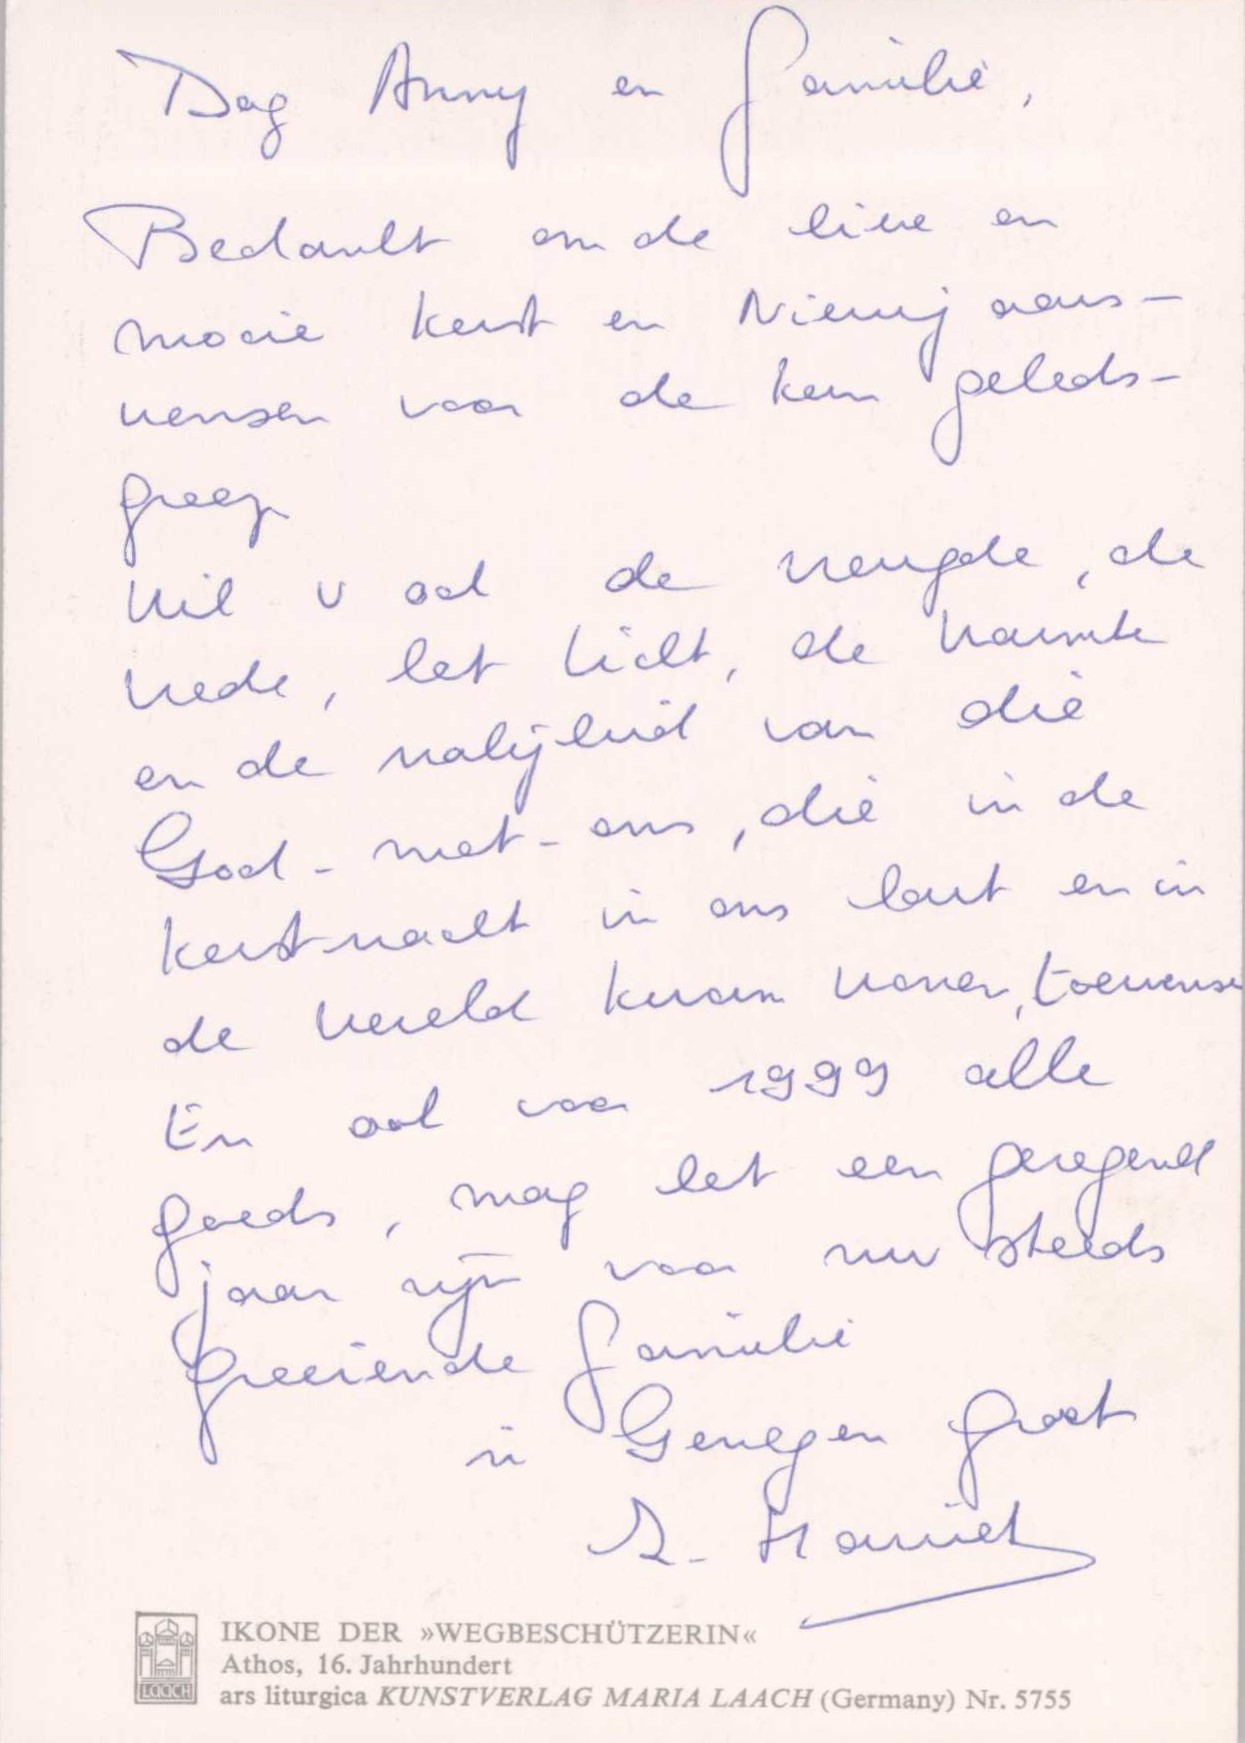 Dag Anny en familie,
Bedankt om de lieve en
mooie kerst en Nieuwjaars-
wensen voor de kern gebeds-
groep
Wil u ook de vreugde, de
vrede, het licht, de warmte
en de nabijheid van die
God-met-ons, die in de
kerstnacht in ons hart en in
de wereld kwam wonen, toewensen
En ook voor 1999 alle
goeds, mag het een gezegend
jaar zijn voor uw steeds
groeiende familie
in Genegen groet
Z. Harriet
IKONE DER »WEGBESCHÜTZERIN«
Athos, 16. Jahrhundert
ars liturgica KUNSTVERLAG MARIA LAACH (Germany) Nr. 5755
LAACH